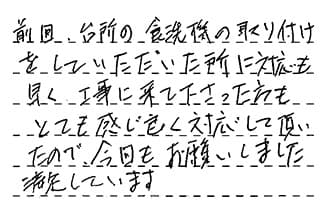 前回、台所の食洗機の取り付け
をしていただいた所に対応も
早く、工事に来て下さった方も
とても感じ良く対応して頂い
たので、今回もお願いしました
満足しています